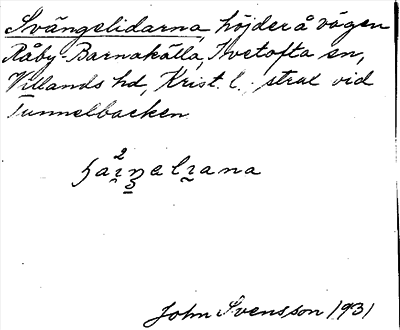 Svängelidarna, höjder å vägen
Råby-Barnakälla, Ivetofta sn,
Villands hd, Krist. l.; strax vid
Tunnelbacken
John Svensson 1931